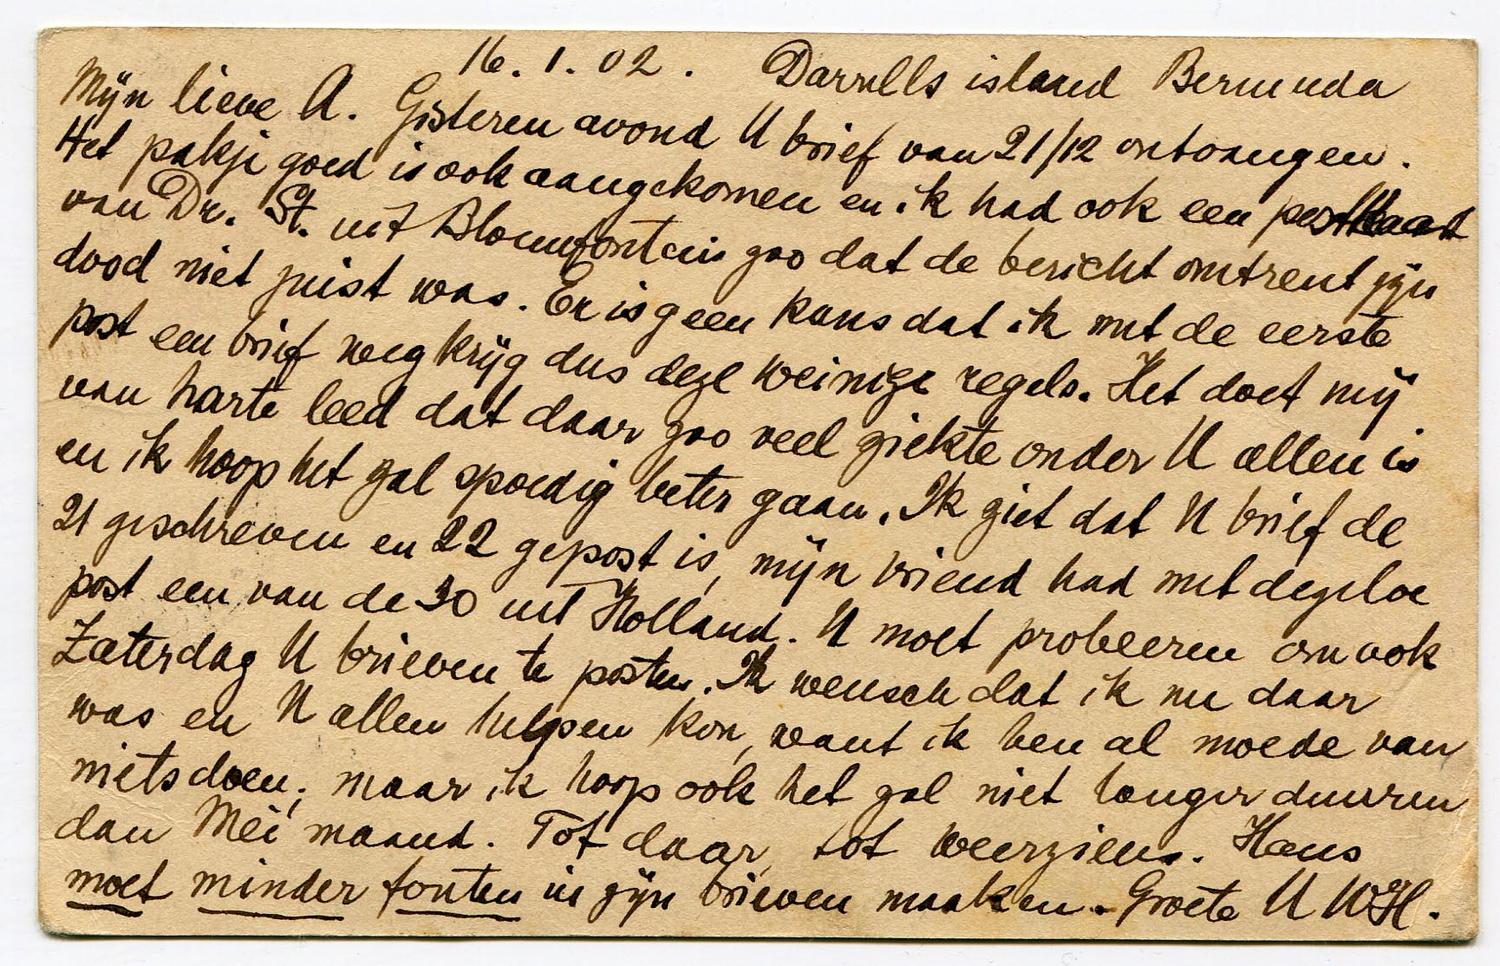 16.1.02. Darrells island Bermuda
Mijn lieve A. Gisteren avond U brief van 21/12 ontvangen.
Het pakje goed is ook aangekomen en ik had ook een postkaart
van Dr. St. uit Bloemfontein zoo dat de bericht omtrent zijn
dood niet juist was. Er is geen kans dat ik met de eerste
post een brief weg krijg dus deze weinige regels. Het doet mij
van harte leed dat daar zoo veel ziekte onder U allen is
en ik hoop het zal spoedig beter gaan. Ik ziet dat U brief de
21 geschreven en 22 gepost is, mijn vriend had met dezelve
post een van de 30 uit Holland. U moet probeeren om ook
Zaterdag U brieven te posten. Ik wensch dat ik nu daar
was en U allen helpen kon, want ik ben al moede van
niets doen; maar ik hoop ook het zal niet langer duuren
dan Mei maand. Tot daar, tot weerziens. Hans
moet minder fouten in zijn brieven maaken. Groete U WH.